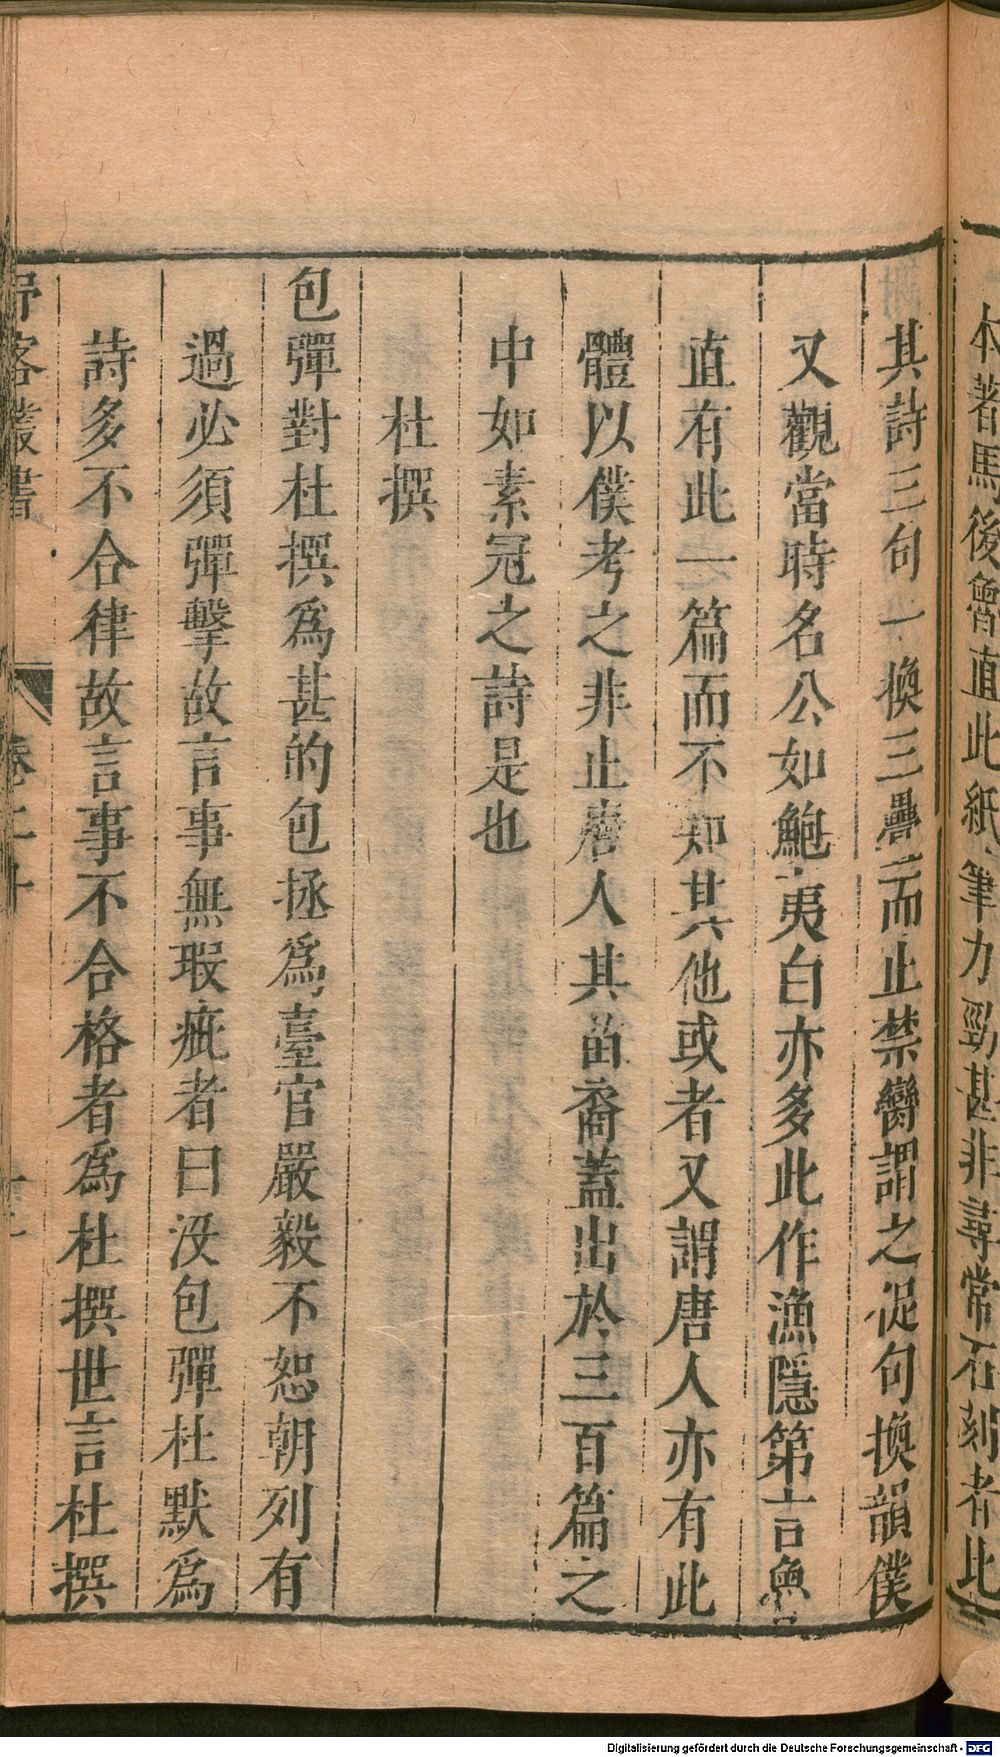 本都馬後魯直此紙筆力勁甚非尋常石刻者比
其詩三句一換三疊而止禁臠謂之促句換韻僕
又觀當時名公如鮑夷白亦多此作漁隱第言魯
直有此一篇而不知其他或者又謂唐人亦有此
體以僕考之非止唐人其苗裔蓋出於三百篇之
中如素冠之詩是也
杜撰
包彈對杜撰爲甚的包拯爲臺官嚴毅不恕朝列有
過必須彈擊故言事無瑕疵者曰沒包彈杜默爲
詩多不合律故言事不合格者爲杜撰世言杜撰
野客叢書
卷二十
Digitalisierung gefördert durch die Deutsche Forschungsgemeinschaft - DFG